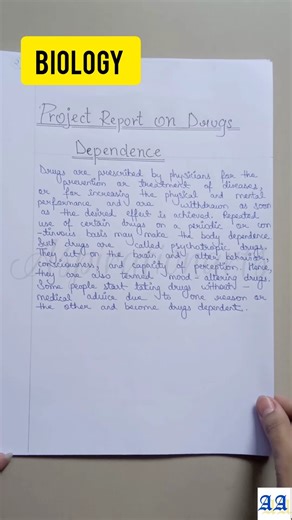 BIOLOGY
Project Report on Drugs
Dependence
Drugs are prescribed by physicians for the
prevention or treatment of diseases,
or for increasing the physical and mental
performance and are withdrawn as soon
as the desired effect is achieved. Repeated
use of certain drugs on a periodic or con
-tinuous basis may make the body dependence
Such drugs are called psychotropic drugs.
They act on the brain and alter behaviour,
consciousness and capacity of perception. Hence,
they are also termed mood-altering drugs.
Some people start taking drugs without -
medical advice due to one reason or
the other and become drugs dependent.
AA